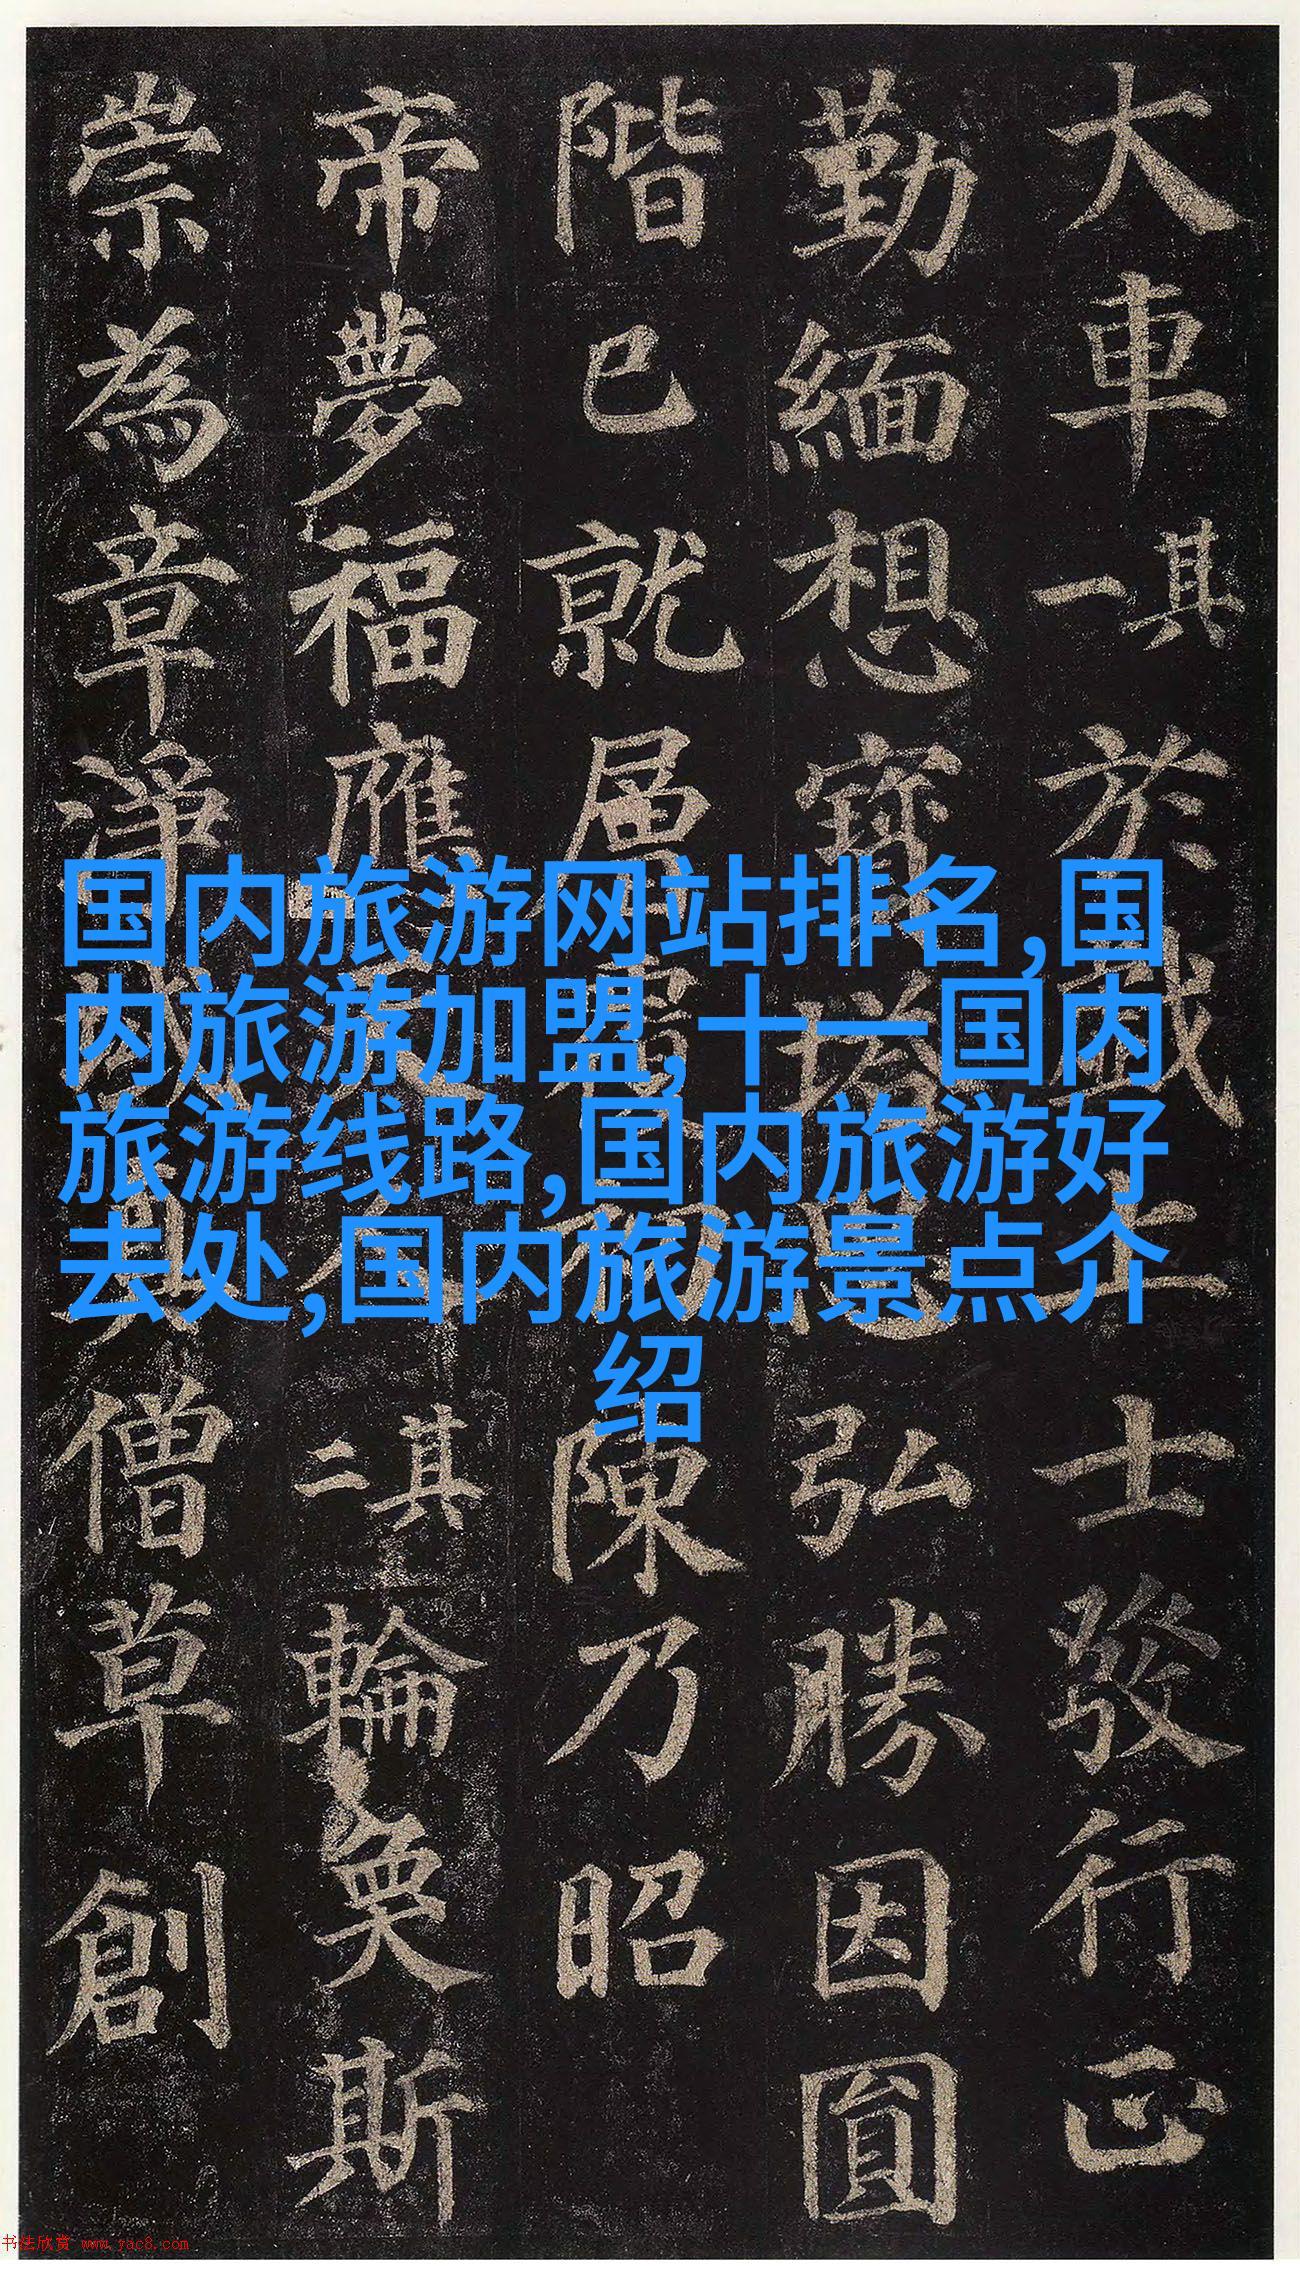 大車其一於戲上士發行正
勤緬想寶塔思弘勝因圓
階已就層覆初陳乃昭
帝夢福應天人其二輪奐斯
崇為章淨域真僧草創
国内旅游网站排名,国
内旅游加盟,十一国内
旅游线路,国内旅游好
去处,国内旅游景点介
绍
书法欣赏 www.yac8.com